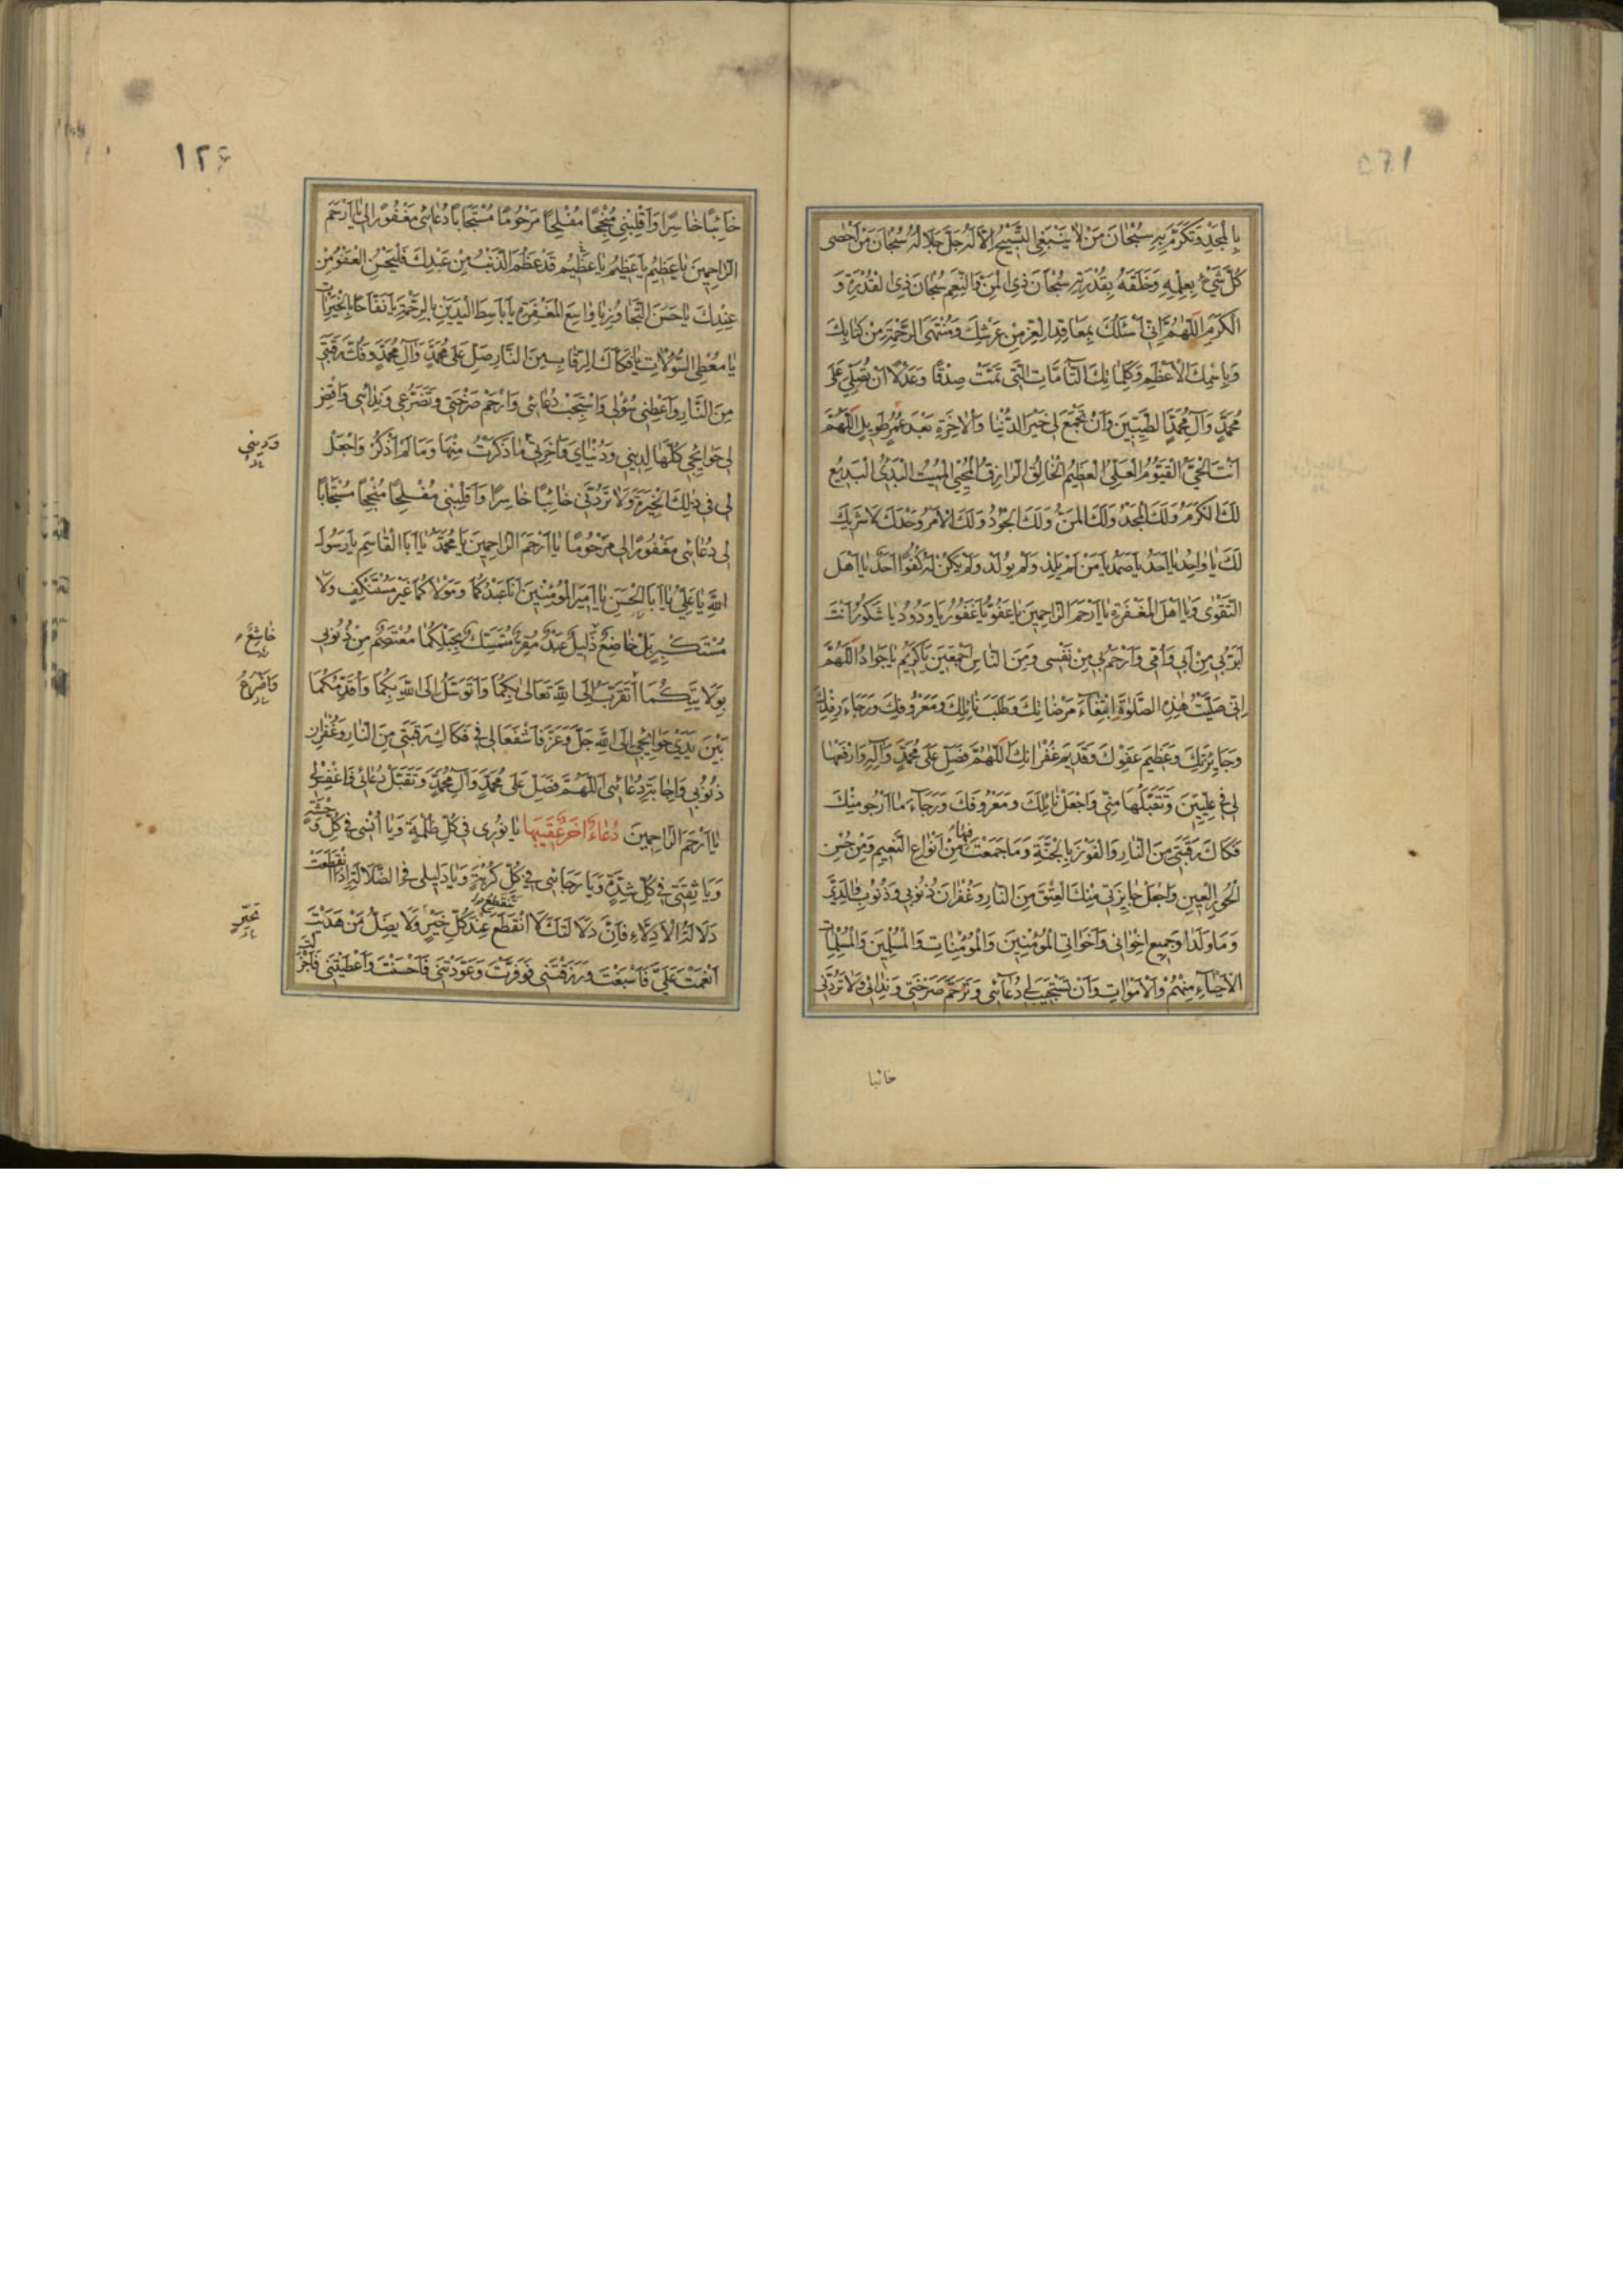 بِالْمَجْدِ وَتَكَرَّمَ بِهِ سُبْحَانَ مَنْ لَا يَنْبَغِي التَّسْبِيحُ إِلَّا لَهُ جَلَّ جَلَالُهُ سُبْحَانَ مَنْ أَحْصَى
كُلَّ شَيْءٍ بِعِلْمِهِ وَخَلَقَهُ بِقُدْرَتِهِ سُبْحَانَ ذِي الْمَنِّ وَالنِّعَمِ سُبْحَانَ ذِي الْقُدْرَةِ وَ
الْكَرَمِ اللّٰهُمَّ إِنِّي أَسْئَلُكَ بِمَعَاقِدِ الْعِزِّ مِنْ عَرْشِكَ وَمُنْتَهَى الرَّحْمَةِ مِنْ كِتَابِكَ
وَبِاسْمِكَ الْأَعْظَمِ وَكَلِمَاتِكَ التَّامَّاتِ الَّتِي تَمَّتْ صِدْقًا وَعَدْلًا أَنْ تُصَلِّيَ عَلَى
مُحَمَّدٍ وَآلِ مُحَمَّدٍ الطَّيِّبِينَ وَأَنْ تَجْمَعَ لِي خَيْرَ الدُّنْيَا وَالْآخِرَةِ بَعْدَ عُمُرٍ طَوِيلٍ اللّٰهُمَّ
أَنْتَ الْحَيُّ الْقَيُّومُ الْعَلِيُّ الْعَظِيمُ الْخَالِقُ الرَّازِقُ الْمُحْيِي الْمُمِيتُ الْبَدِيُّ الْبَدِيعُ
لَكَ الْكَرَمُ وَلَكَ الْمَجْدُ وَلَكَ الْمَنُّ وَلَكَ الْجُودُ وَلَكَ الْأَمْرُ وَحْدَكَ لَا شَرِيكَ
لَكَ يَا وَاحِدُ يَا أَحَدُ يَا صَمَدُ يَا مَنْ لَمْ يَلِدْ وَلَمْ يُولَدْ وَلَمْ يَكُنْ لَهُ كُفُوًا أَحَدٌ يَا أَهْلَ
التَّقْوٰى وَيَا أَهْلَ الْمَغْفِرَةِ يَا أَرْحَمَ الرَّاحِمِينَ يَا عَفُوُّ يَا غَفُورُ يَا وَدُودُ يَا شَكُورُ أَنْتَ
أَبَرُّ بِي مِنْ أَبِي وَأُمِّي وَأَرْحَمُ بِي مِنْ نَفْسِي وَمِنَ النَّاسِ أَجْمَعِينَ يَا كَرِيمُ يَا جَوَادُ اللّٰهُمَّ
إِنِّي صَلَّيْتُ هٰذِهِ الصَّلٰوةَ ابْتِغَاءَ مَرْضَاتِكَ وَطَلَبَ نَائِلِكَ وَمَعْرُوفِكَ وَرَجَاءَ رِفْدِكَ
وَجَائِزَتِكَ وَعَظِيمِ عَفْوِكَ وَقَدِيمِ غُفْرَانِكَ اللّٰهُمَّ فَصَلِّ عَلَى مُحَمَّدٍ وَآلِهِ وَارْفَعْهَا
لِي فِي عِلِّيِّينَ وَتَقَبَّلْهَا مِنِّي وَاجْعَلْ نَائِلَكَ وَمَعْرُوفَكَ وَرَجَاءَ مَا أَرْجُو مِنْكَ
فَكَاكَ رَقَبَتِي مِنَ النَّارِ وَالْفَوْزَ بِالْجَنَّةِ وَمَا جَمَعْتَ فِيهَا مِنْ أَنْوَاعِ النَّعِيمِ وَمِنْ حُسْنِ
الْحُورِ الْعِينِ وَاجْعَلْ جَائِزَتِي مِنْكَ الْعِتْقَ مِنَ النَّارِ وَغُفْرَانَ ذُنُوبِي وَذُنُوبِ وَالِدَيَّ
وَمَا وَلَدَا وَجَمِيعِ إِخْوَانِي وَأَخَوَاتِي الْمُؤْمِنِينَ وَالْمُؤْمِنَاتِ وَالْمُسْلِمِينَ وَالْمُسْلِمَاتِ
الْأَحْيَاءِ مِنْهُمْ وَالْأَمْوَاتِ وَأَنْ تَسْتَجِيبَ لِي دُعَائِي وَتَرْحَمَ صَرْخَتِي وَنِدَائِي وَلَا تَرُدَّنِي
خائبا
١٢٦
خَائِبًا خَاسِرًا وَاقْلِبْنِي مُنْجِحًا مُفْلِحًا مَرْحُومًا مُسْتَجَابًا دُعَائِي مَغْفُورًا لِي يَا أَرْحَمَ
الرَّاحِمِينَ يَا عَظِيمُ يَا عَظِيمُ يَا عَظِيمُ قَدْ عَظُمَ الذَّنْبُ مِنْ عَبْدِكَ فَلْيَحْسُنِ الْعَفْوُ مِنْ
عِنْدِكَ يَا حَسَنَ التَّجَاوُزِ يَا وَاسِعَ الْمَغْفِرَةِ يَا بَاسِطَ الْيَدَيْنِ بِالرَّحْمَةِ يَا نَفَّاحًا بِالْخَيْرَاتِ
يَا مُعْطِيَ السُّؤْلَاتِ يَا فَكَّاكَ الرِّقَابِ مِنَ النَّارِ صَلِّ عَلَى مُحَمَّدٍ وَآلِ مُحَمَّدٍ وَفُكَّ رَقَبَتِي
مِنَ النَّارِ وَأَعْطِنِي سُؤْلِي وَاسْتَجِبْ دُعَائِي وَارْحَمْ صَرْخَتِي وَتَضَرُّعِي وَنِدَائِي وَاقْضِ
لِي حَوَائِجِي كُلَّهَا لِدِينِي وَدُنْيَايَ وَآخِرَتِي مَا ذَكَرْتُ مِنْهَا وَمَا لَمْ أَذْكُرْ وَاجْعَلْ
وَدِينِي
لِي فِي ذٰلِكَ الْخِيَرَةَ وَلَا تَرُدَّنِي خَائِبًا خَاسِرًا وَاقْلِبْنِي مُفْلِحًا مُنْجِحًا مُسْتَجَابًا
لِي دُعَائِي مَغْفُورًا لِي مَرْحُومًا يَا أَرْحَمَ الرَّاحِمِينَ يَا مُحَمَّدُ يَا أَبَا الْقَاسِمِ يَا رَسُولَ
اللّٰهِ يَا عَلِيُّ يَا أَبَا الْحَسَنِ يَا أَمِيرَ الْمُؤْمِنِينَ أَنَا عَبْدُكُمَا وَمَوْلَاكُمَا غَيْرُ مُسْتَنْكِفٍ وَلَا
مُسْتَكْبِرٍ بَلْ خَاضِعٌ ذَلِيلٌ عَبْدٌ مُقِرٌّ مُتَمَسِّكٌ بِحَبْلِكُمَا مُعْتَصِمٌ مِنْ ذُنُوبِي
خَاشِعٌ
بِوَلَايَتِكُمَا أَتَقَرَّبُ إِلَى اللّٰهِ تَعَالَى بِكُمَا وَأَتَوَسَّلُ إِلَى اللّٰهِ بِكُمَا وَأُقَدِّمُكُمَا
وَأَضْرَعُ
بَيْنَ يَدَيْ حَوَائِجِي إِلَى اللّٰهِ جَلَّ وَعَزَّ فَاشْفَعَا لِي فِي فَكَاكِ رَقَبَتِي مِنَ النَّارِ وَغُفْرَانِ
ذُنُوبِي وَإِجَابَةِ دُعَائِي اللّٰهُمَّ فَصَلِّ عَلَى مُحَمَّدٍ وَآلِ مُحَمَّدٍ وَتَقَبَّلْ دُعَائِي وَاغْفِرْ لِي
يَا أَرْحَمَ الرَّاحِمِينَ دُعَاءٌ آخَرُ عَقِيبَهَا يَا نُورِي فِي كُلِّ ظُلْمَةٍ وَيَا أُنْسِي فِي كُلِّ وَحْشَةٍ
وَيَا ثِقَتِي فِي كُلِّ شِدَّةٍ وَيَا رَجَائِي فِي كُلِّ كُرْبَةٍ وَيَا دَلِيلِي فِي الضَّلَالَةِ إِذَا انْقَطَعَتْ
دَلَالَةُ الْأَدِلَّاءِ فَإِنَّ دَلَالَتَكَ لَا انْقَطَعَ تَنْقَطِعُ عِنْدَ كُلِّ خَيْرٍ وَلَا يَضِلُّ مَنْ هَدَيْتَ
تَحَيُّرٍ
أَنْعَمْتَ عَلَيَّ فَأَسْبَغْتَ وَرَزَقْتَنِي فَوَفَّرْتَ وَعَوَّدْتَنِي فَأَحْسَنْتَ وَأَعْطَيْتَنِي فَأَجْزَلْتَ